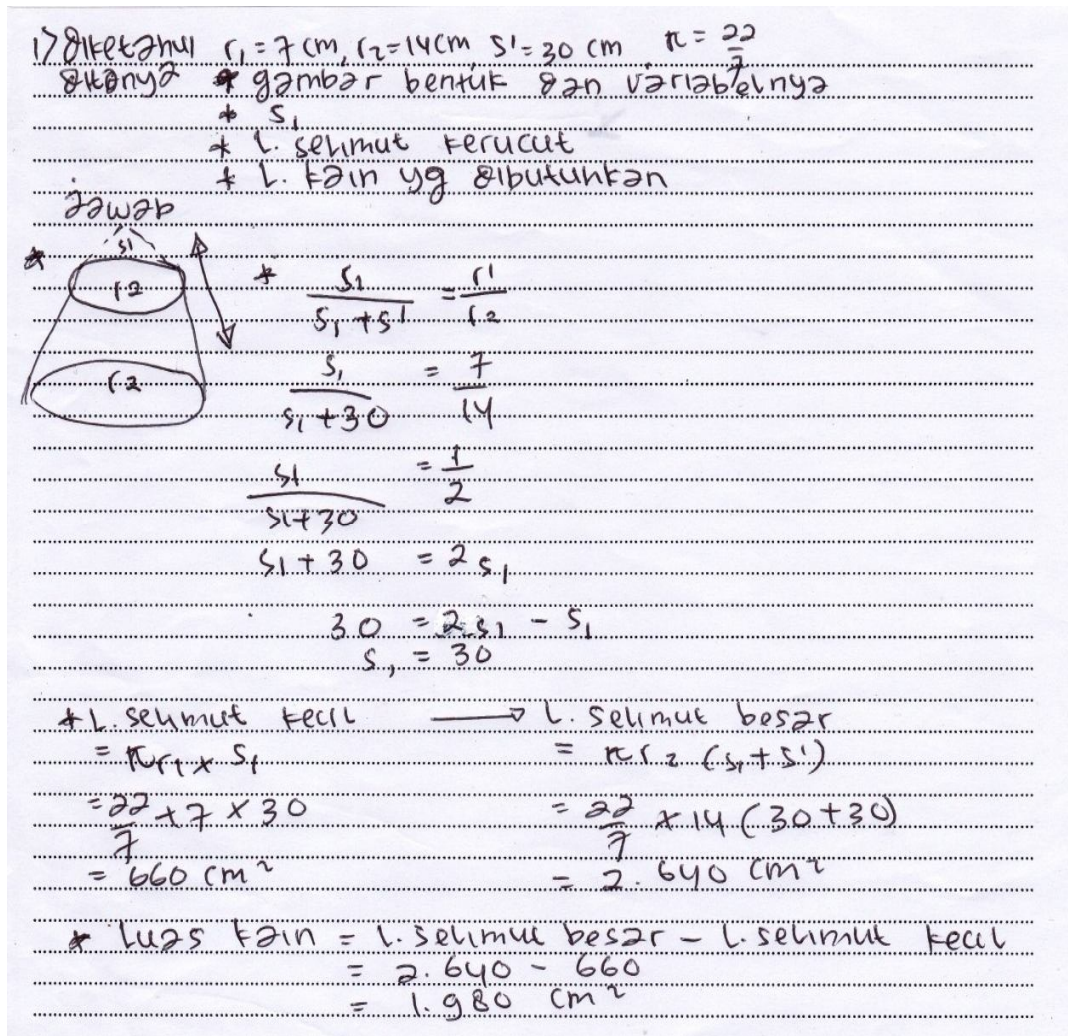 1) Diketahui r₁ = 7 cm, r₂ = 14 cm s' = 30 cm π = 22/7
Ditanya * gambar bentuk dan variabelnya
* s₁
* L. selimut kerucut
* L. kain yg dibutuhkan
Jawab
*
s1
r2
r2
* s₁/(s₁ + s') = r1/r2
s₁/(s₁ + 30) = 7/14
s1/(s1 + 30) = 1/2
s1 + 30 = 2 s₁
30 = 2 s1 - s₁
s₁ = 30
* L. selimut kecil → L. selimut besar
= π r₁ x s₁ = π r₂ (s₁ + s')
= 22/7 x 7 x 30 = 22/7 x 14 (30 + 30)
= 660 cm² = 2.640 cm²
* Luas kain = L. selimut besar - L. selimut kecil
= 2.640 - 660
= 1.980 cm²